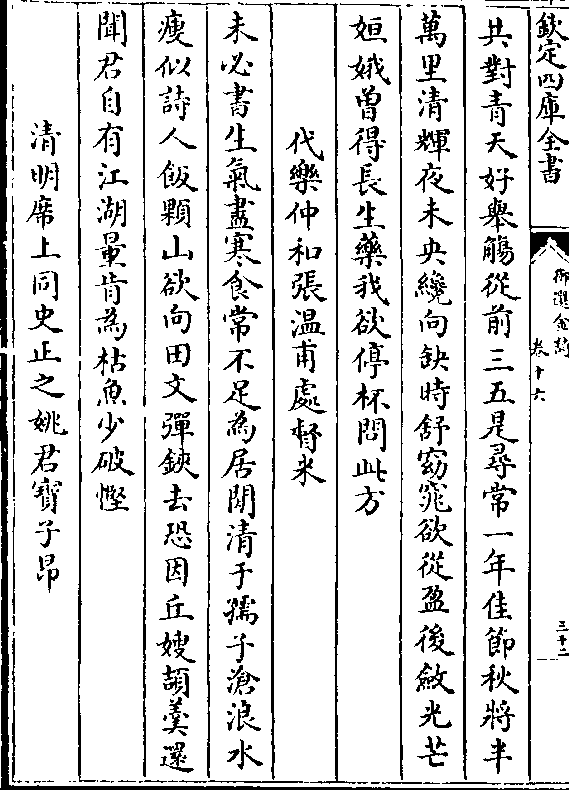 欽定四庫全書
御選金詩
卷十六
三十二
共對青天好舉觴從前三五是尋常一年佳節秋將半
萬里清輝夜未央纔向缺時舒窈窕欲從盈後斂光芒
姮娥曾得長生藥我欲停杯問此方
代樂仲和張温甫處督米
未必書生氣盡寒食常不足為居閒清于孺子滄浪水
瘦似詩人飯顆山欲向田文彈鋏去恐因丘嫂頡羹還
聞君自有江湖量肯為枯魚少破慳
清明席上同史正之姚君寶子昂